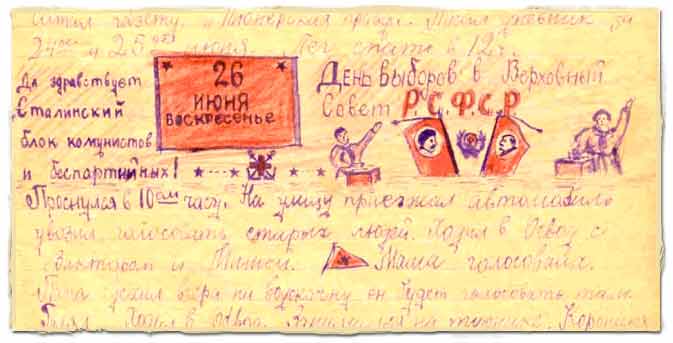 читал газету. „Пионерская правда". Писал дневник за
24ое и 25ое июня. Лег спать в 12ч.
Да здравствует
Сталинский
блок комунистов
и беспартийных!
26
ИЮНЯ
Воскресенье
День выборов в Верховный
Совет Р.С.Ф.С.Р
Проснулся в 10ом часу. На улицу приезжал автомобиль
увозил голосовать старых людей. Ходил в Освод с
и Мишей. Мама голосовала.
он будет голосовать там.
Ходил в освод. на турнике.